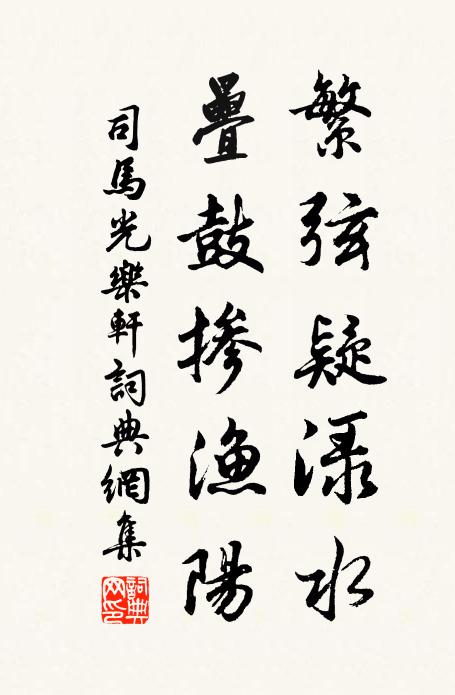 繁弦疑渌水
疊鼓摻漁陽
司馬光樂軒詞典網集
詞典網印